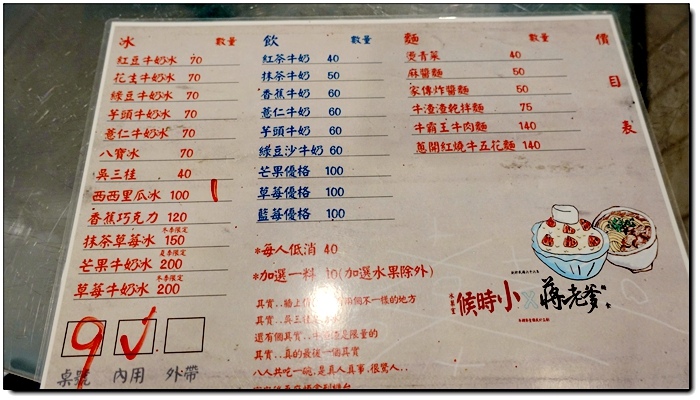 冰 數量
紅豆牛奶冰 70
花生牛奶冰 70
綠豆牛奶冰 70
芋頭牛奶冰 70
薏仁牛奶冰 70
八寶冰 70
吳三桂 40
西西里瓜冰 100
香蕉巧克力 120
冬季限定
抹茶草莓冰 150
夏季限定
芒果牛奶冰 200
冬季限定
草莓牛奶冰 200
9 ✓
桌號 內用 外帶
飲 數量
紅茶牛奶 40
抹茶牛奶 50
香蕉牛奶 60
薏仁牛奶 60
芋頭牛奶 60
綠豆沙牛奶 60
芒果優格 100
草莓優格 100
藍莓優格 100
麵 數量
燙青菜 40
麻醬麵 50
家傳炸醬麵 50
牛渣渣乾拌麵 75
牛霸王牛肉麵 140
蔥開紅燒牛五花麵 140
價目表
*每人低消 40
*加選一料 10(加選水果除外)
其實..牆上 個不一樣的地方
其實..吳三桂
還有個其實.. 是限量的
其實..真的最後一個其實
八人共吃一碗.是真人真事.很驚人..
小時候 蔣老爹